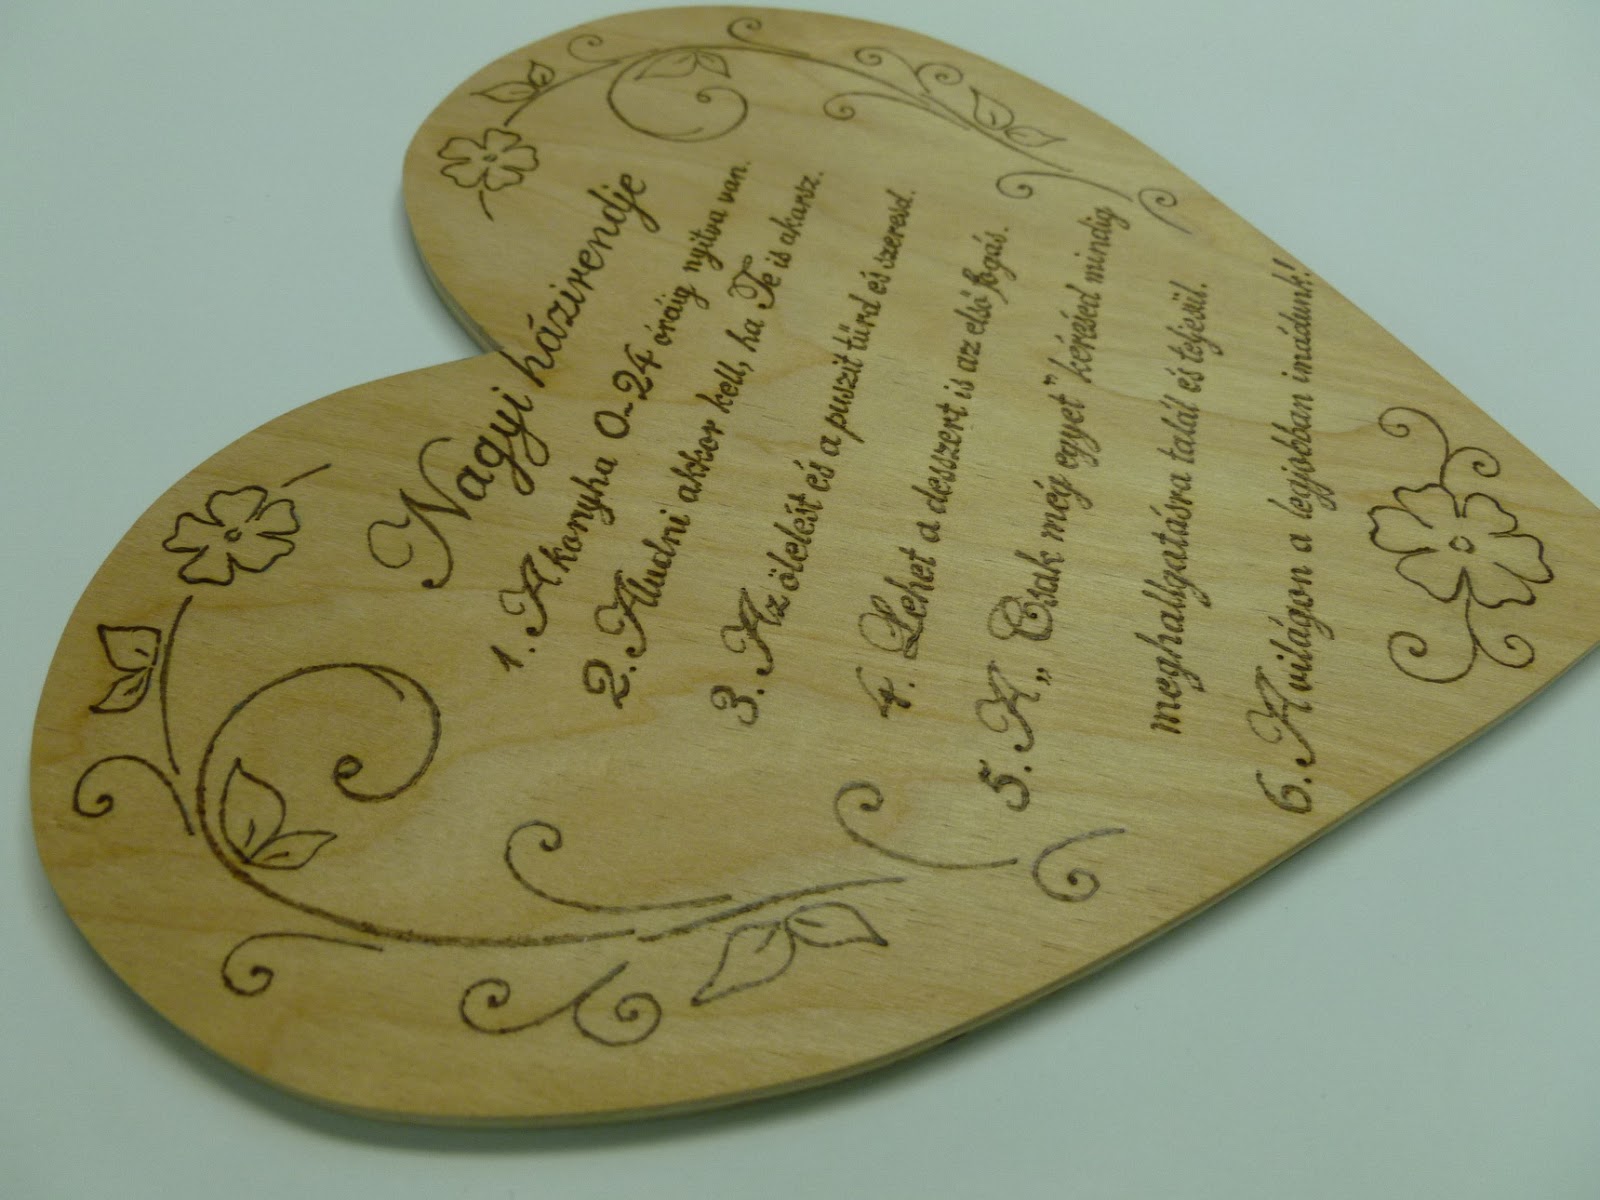 Nagyi házirendje
1. A konyha 0-24 óráig nyitva van.
2. Aludni akkor kell, ha Te is akarsz.
3. Az ölelést és a puszit tűrd és szeresd.
4. Lehet a desszert is az első fogás.
5. A „Csak még egyet” kérésed mindig
meghallgatásra talál és teljesül.
6. A világon a legjobban imádunk!